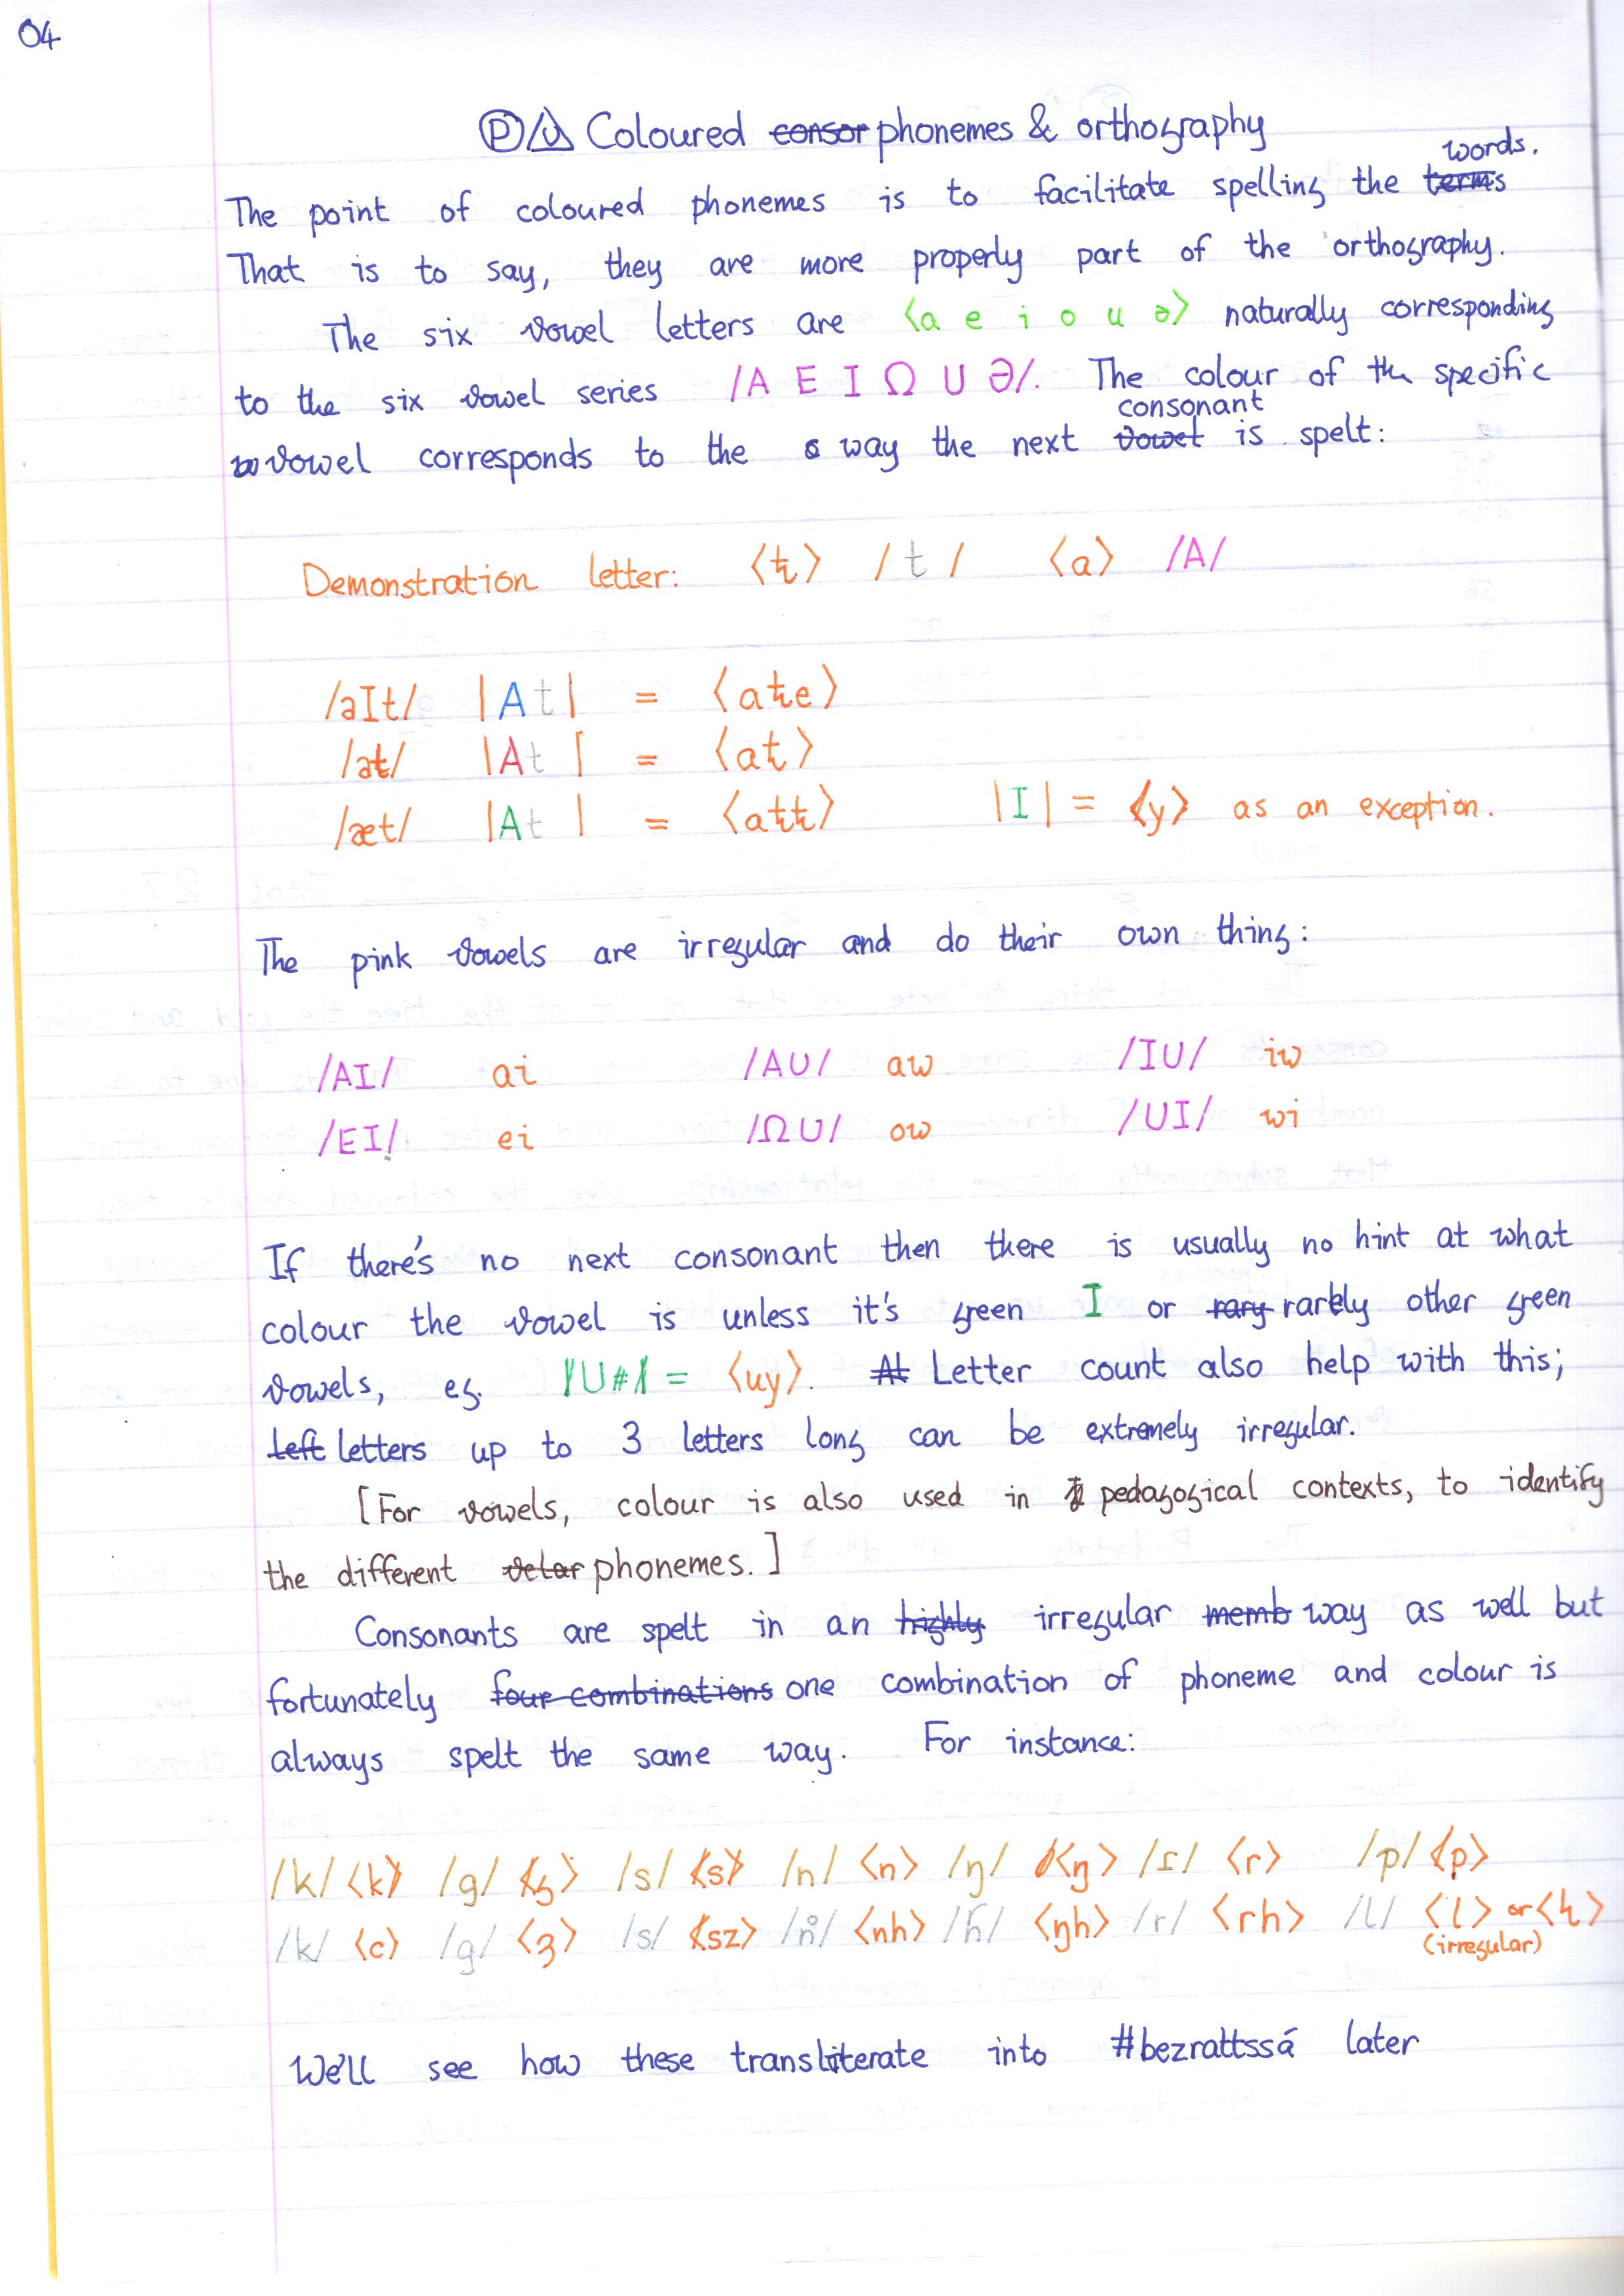 04
Ⓟ/⚠ Coloured consor phonemes & orthography
words.
The point of coloured phonemes is to facilitate spelling the terms
That is to say, they are more properly part of the orthography.
The six vowel letters are ⟨a e i o u ə⟩ naturally corresponding
to the six vowel series /A E I Ω U Ə/. The colour of the specific
consonant
vowel corresponds to the way the next vowel is spelt:
Demonstration letter: ⟨ŧ⟩ /t/ ⟨a⟩ /A/
/əIt/ |At| = ⟨aŧe⟩
/ət/ |At| = ⟨aŧ⟩
/æt/ |At| = ⟨aŧŧ⟩ |I| = ⟨y⟩ as an exception.
The pink vowels are irregular and do their own thing:
/AI/ ai /AU/ aw /IU/ iw
/EI/ ei /ΩU/ ow /UI/ wi
If there's no next consonant then there is usually no hint at what
colour the vowel is unless it's green I or rary rarely other green
vowels, eg. |U#| = ⟨uy⟩. At Letter count also help with this;
Left letters up to 3 letters long can be extremely irregular.
[For vowels, colour is also used in pedagogical contexts, to identify
the different velar phonemes.]
Consonants are spelt in an highly irregular memb way as well but
fortunately four combinations one combination of phoneme and colour is
always spelt the same way. For instance:
/k/ ⟨k⟩ /g/ ⟨g⟩ /s/ ⟨s⟩ /n/ ⟨n⟩ /ŋ/ ⟨ŋ⟩ /ɾ/ ⟨r⟩ /p/ ⟨p⟩
/k/ ⟨c⟩ /g/ ⟨ʒ⟩ /s/ ⟨sz⟩ /n̊/ ⟨nh⟩ /ɦ/ ⟨ŋh⟩ /r/ ⟨rh⟩ /l/ ⟨l⟩ or ⟨ɬ⟩
(irregular)
We'll see how these transliterate into #bezrattssá later